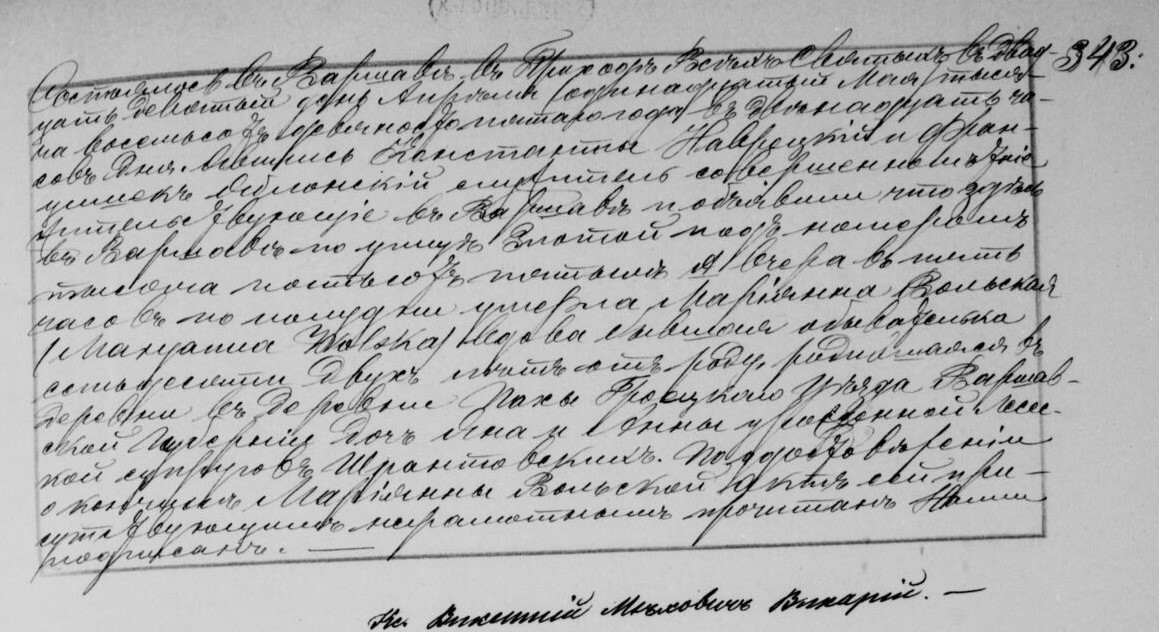 343.
Состоялось въ Варшавѣ, въ Приходѣ Всѣхъ Святыхъ въ двад-
цать девятый день Апрѣля (одинадцатый Мая) тыся-
ча восемьсотъ девяносто пятаго года въ двѣнадцать ча-
совъ дня. Явились Константы Навроцкій и Фран-
цишекъ служитель совершеннолѣтніе
жительствующіе въ Варшавѣ и объявили что здѣсь
въ Варшавѣ по улицѣ Златой подъ номеромъ
тысяча пятьсотъ пятымъ вчера въ пять
часовъ по полудни умерла Маріянна Вольская
(Maryanna Wolska) вдова бывшая обывателька
семьдесяти двухъ лѣтъ отъ роду, родившаяся въ
деревни въ деревни Гроецкаго Уѣзда Варшав-
ской Губерніи дочь Яна и Анны урожденной
супруговъ Шрантовскихъ. По удостовѣреніи
о кончинѣ Маріянны Вольской актъ сей при-
сутствующимъ неграмотнымъ прочитанъ Нами
подписанъ. —
Кс. Викентій Мѣховичъ Викарій. —